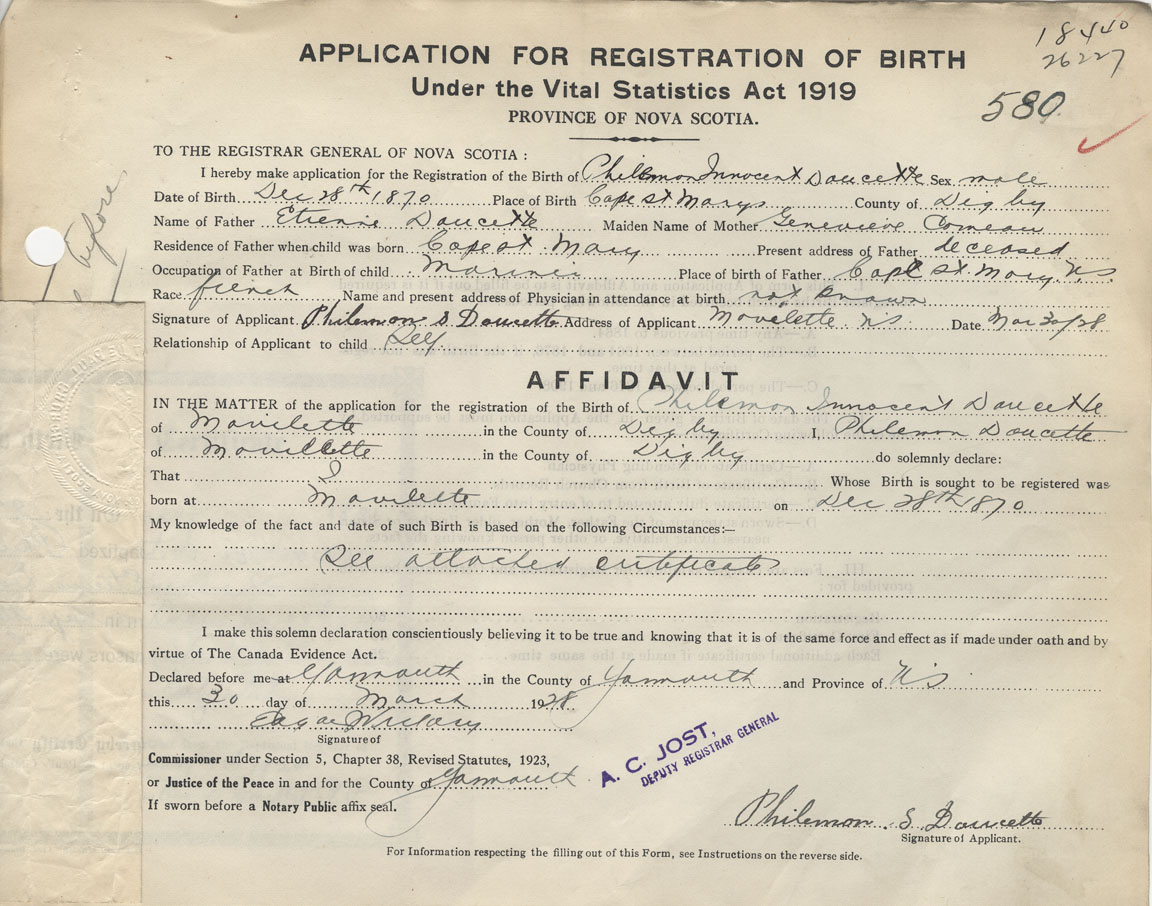 18440
26227
580
APPLICATION FOR REGISTRATION OF BIRTH
Under the Vital Statistics Act 1919
PROVINCE OF NOVA SCOTIA.
TO THE REGISTRAR GENERAL OF NOVA SCOTIA :
I hereby make application for the Registration of the Birth of Philemon Innocent Doucette Sex male
Date of Birth Dec 28th 1870 Place of Birth Cape St Marys County of Digby
Name of Father Etienne Doucette Maiden Name of Mother Genevieve Comeau
Residence of Father when child was born Cape St Mary Present address of Father deceased
Occupation of Father at Birth of child Mariner Place of birth of Father Cape St Mary N.S.
Race french Name and present address of Physician in attendance at birth not known
Signature of Applicant Philemon S Doucette Address of Applicant Mavilette NS Date Mar 30/28
Relationship of Applicant to child Self
before
AFFIDAVIT
IN THE MATTER of the application for the registration of the Birth of Philemon Innocent Doucette
of Mavilette in the County of Digby I, Philemon Doucette
of Mavillette in the County of Digby do solemnly declare:
That I Whose Birth is sought to be registered was
born at Mavilette on Dec 28th 1870
My knowledge of the fact and date of such Birth is based on the following Circumstances:—
See attached certificate
I make this solemn declaration conscientiously believing it to be true and knowing that it is of the same force and effect as if made under oath and by
virtue of The Canada Evidence Act.
Declared before me at Yarmouth in the County of Yarmouth and Province of NS
this 30 day of March 1928
Signature of
Commissioner under Section 5, Chapter 38, Revised Statutes, 1923,
or Justice of the Peace in and for the County of Yarmouth
If sworn before a Notary Public affix seal.
A. C. JOST,
DEPUTY REGISTRAR GENERAL
Philemon S Doucette
Signature of Applicant.
For Information respecting the filling out of this Form, see Instructions on the reverse side.